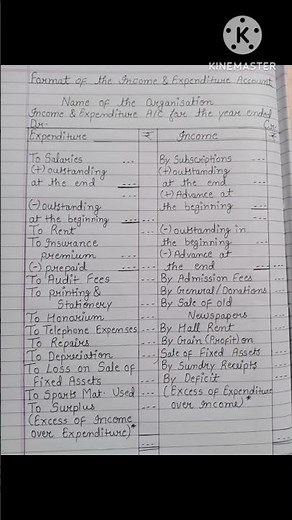 K
KINEMASTER
Format of the Income & Expenditure Account
Name of the Organisation
Income & Expenditure A/C for the year ended
Dr. Cr.
Expenditure ₹ Income ₹
To Salaries --- By Subscriptions ---
(+) outstanding (+) outstanding
at the end --- at the end ---
(+) Advance at
(-) outstanding the beginning ---
at the beginning ---
To Rent --- (-) outstanding in
To Insurance the beginning ---
premium --- (-) Advance at
(-) prepaid --- --- the end --- ---
To Audit Fees --- By Admission Fees ---
To printing & By General/Donations ---
Stationery --- By Sale of old
To Honorium --- Newspapers ---
To Telephone Expenses --- By Hall Rent ---
To Repairs --- By Gain (Profit) on
To Depreciation --- Sale of Fixed Assets ---
To Loss on Sale of By Sundry Receipts ---
Fixed Assets --- By Deficit ---
To Sports Mat. Used --- (Excess of Expenditure
To Surplus --- over Income)*
(Excess of Income
over Expenditure)*